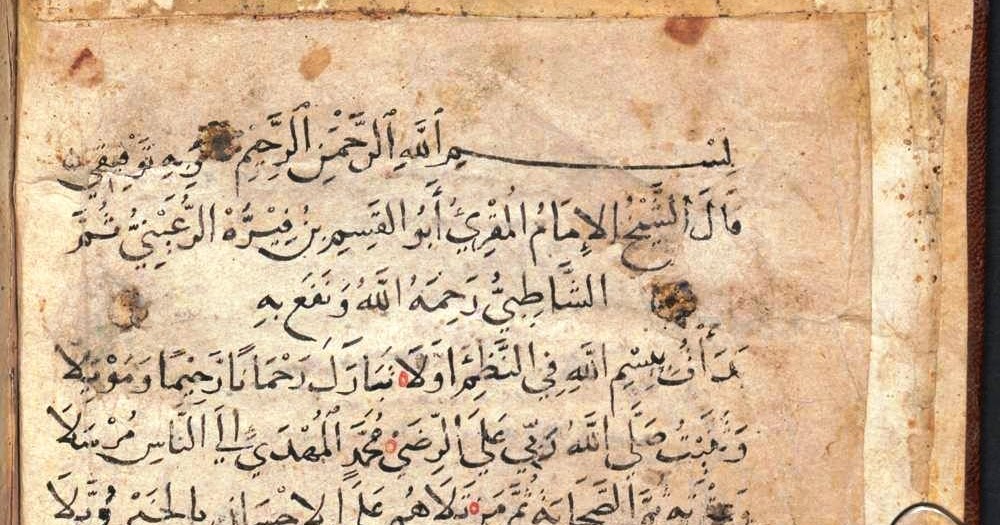 بِسْمِ ٱللَّهِ ٱلرَّحْمَٰنِ ٱلرَّحِيمِ وَبِهِ تَوْفِيقِي
قَالَ الشَّيْخُ الإِمَامُ المُقْرِئُ أَبُو القَسِمِ بنُ فِيرُّهْ الرُّعَيْنِيُّ ثُمَّ
الشَّاطِبِيُّ رَحِمَهُ اللَّهُ وَنَفَعَ بِهِ
بَدَأْتُ بِبِسْمِ اللَّهِ فِي النَّظْمِ أَوَّلَا تَبَارَكَ رَحْمَانًا رَحِيمًا وَمَوْئِلَا
وَثَنَّيْتُ صَلَّى اللَّهُ رَبِّي عَلَى الرِّضَى مُحَمَّدٍ المُهْدَى إِلَى النَّاسِ مُرْسَلَا
وَعِتْرَتِهِ ثُمَّ الصَّحَابَةِ ثُمَّ مَنْ تَلَاهُمْ عَلَى الإِحْسَانِ بِالخَيْرِ وُبَّلَا